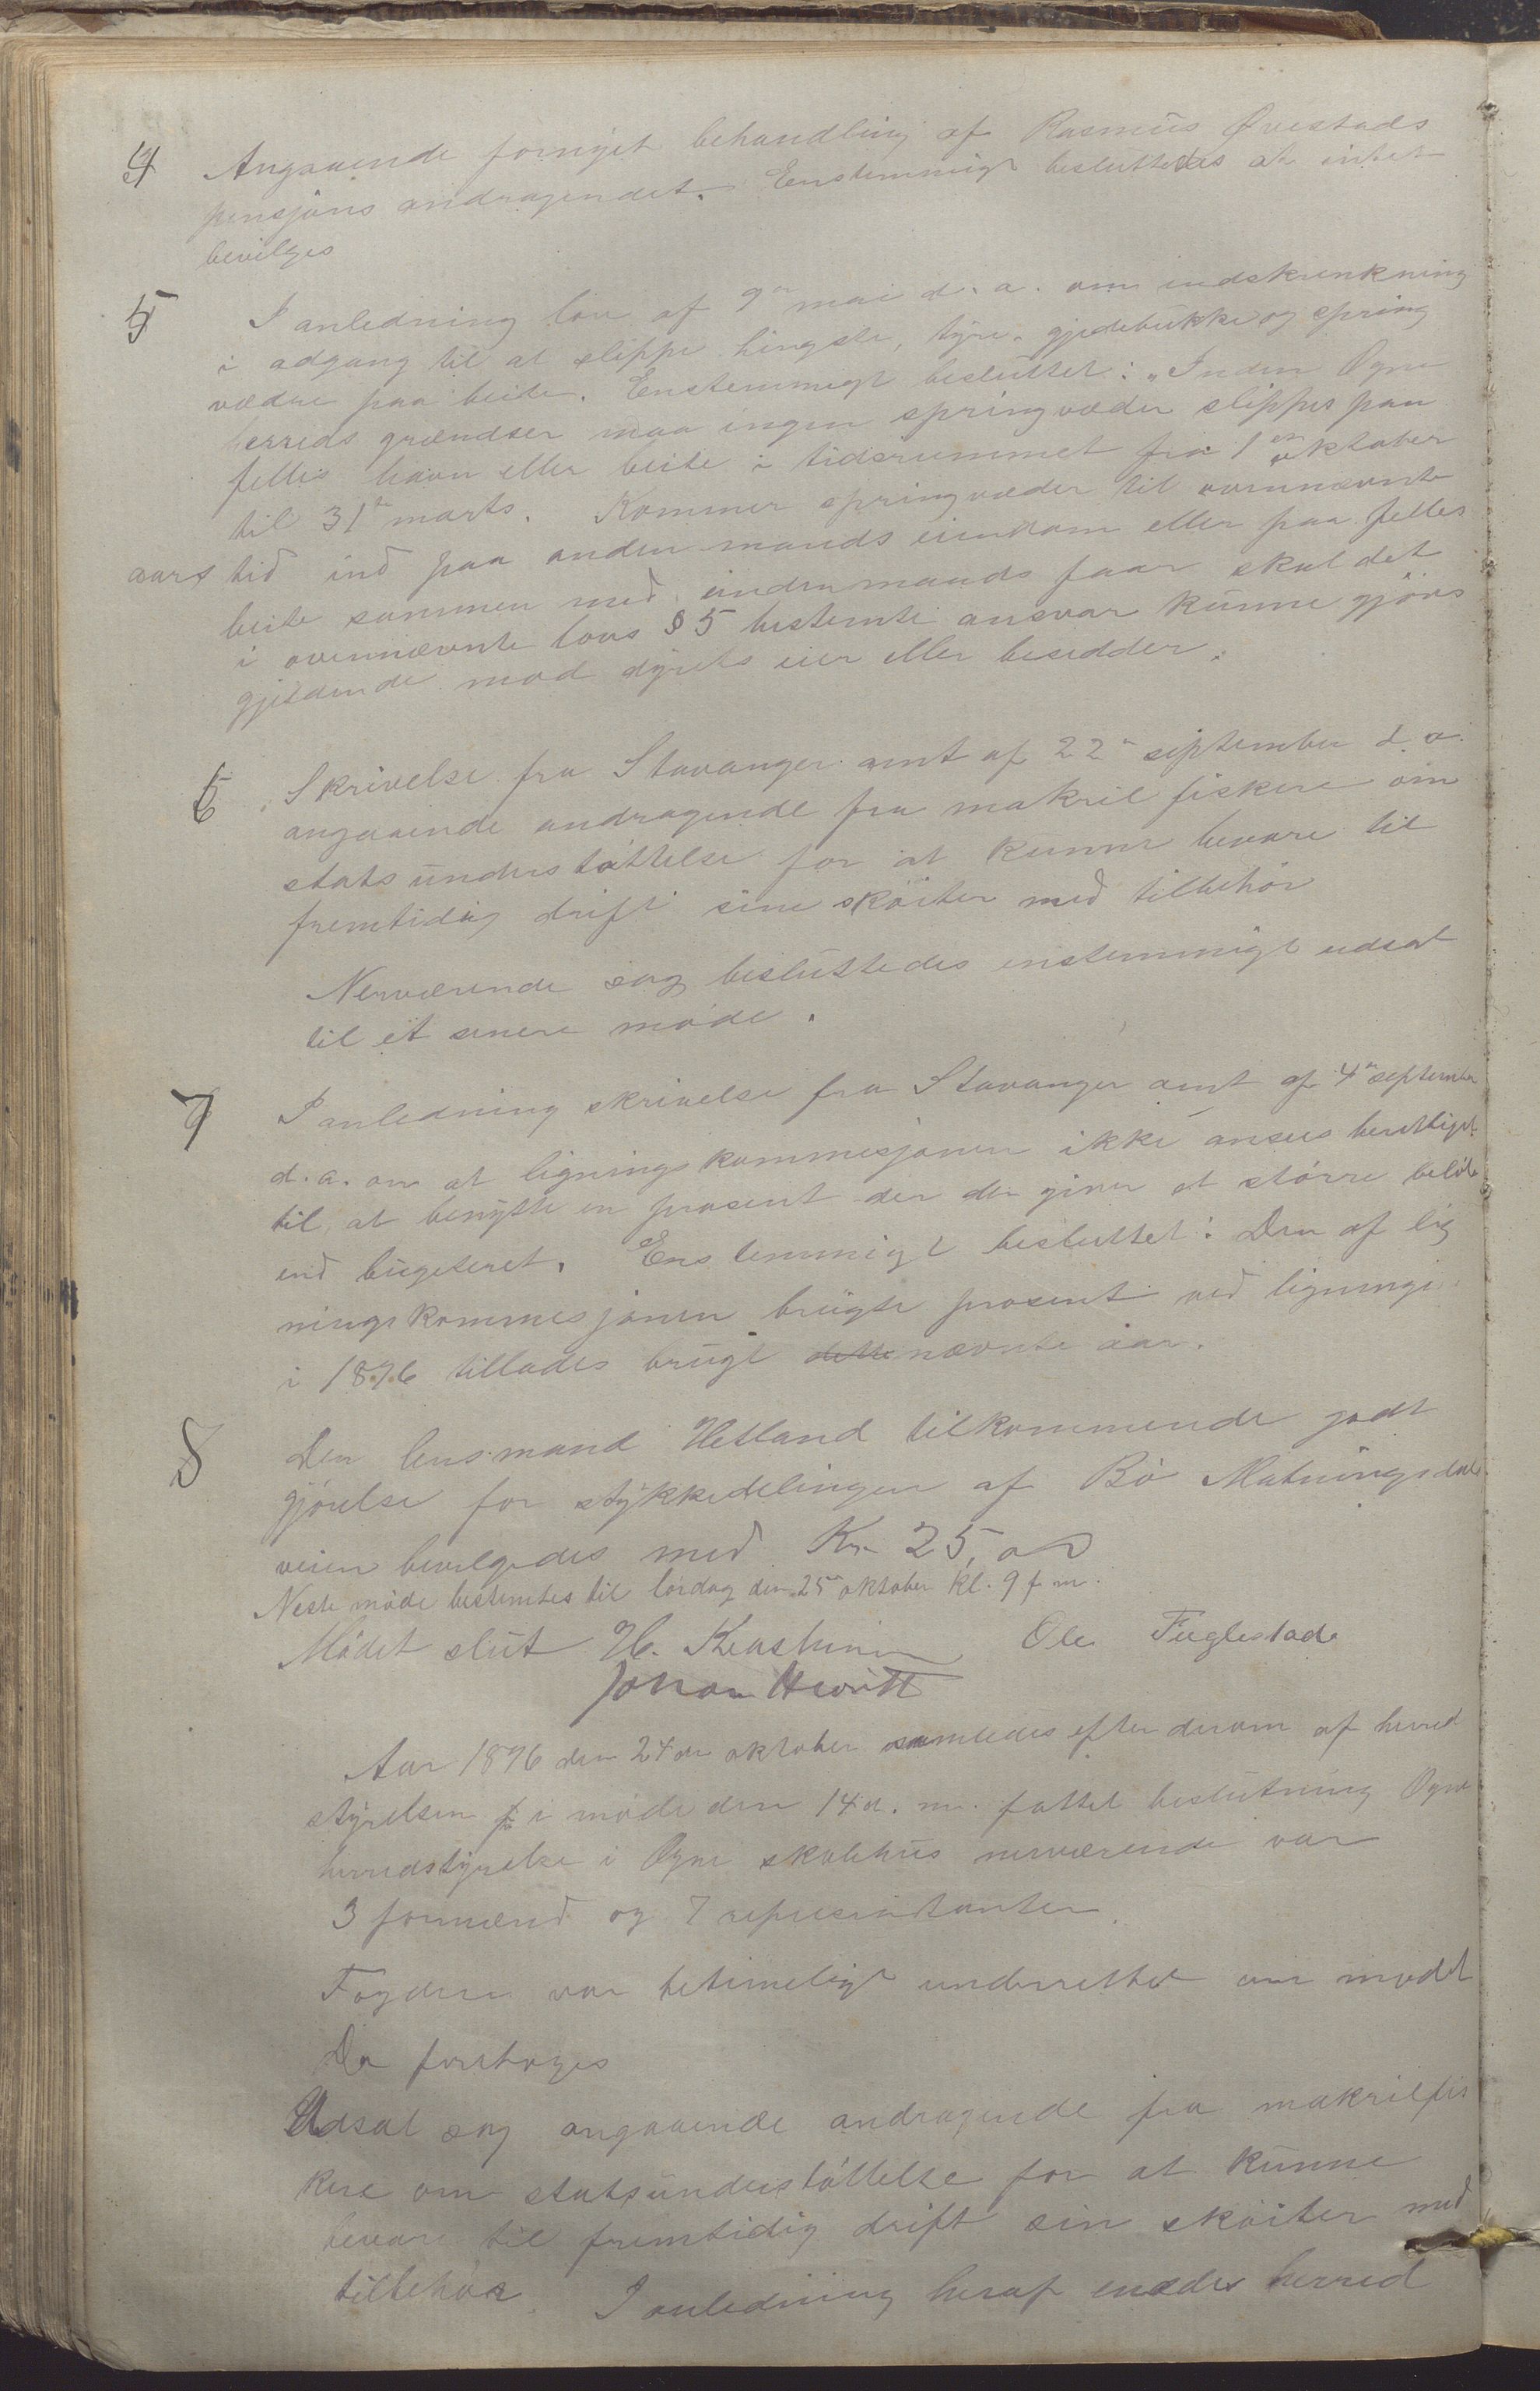 4 Angaaende fornyet behandling af Rasmus Ovestads
pensjöns andragendet. Enstemmigt besluttedes at intet
bevilges
5 I anledning lov af 9de mai d. a. om indskrenkning
i adgang til at slippe hingste, tyre, gjedebukke og spring
vædre paa beite. Enstemmigt besluttet: „Inden Ogne
herreds grændser maa ingen springvæder slippes paa
felles havn eller beite i tidsrummet fra 1en oktober
til 31te marts. Kommer springvæder til ovennævnte
aars tid ind paa anden mands eiendom eller paa felles
beite sammen med anden mands faar skal det
i ovennævnte lovs § 5 bestemte ansvar kunne gjöres
gjeldende mod dyrets eier eller besidder.
6 Skrivelse fra Stavanger amt af 22de september d. a.
angaaende andragende fra makrelfiskere om
statsunderstöttelse for at kunne bevare til
fremtidig drift sine sköiter med tilbehör
Nerværende sag besluttedes enstemmigt udsat
til et senere möde.
7 I anledning skrivelse fra Stavanger amt af 4de september
d. a. om at ligningskommesjonen ikke ansees berettiget
til at benytte en prosent der den giver et större belöb
end bugeteret. Enstemmigt besluttet: Den af lig
ningskommesjonen brugte prosent ved ligningen
i 1896 tillades brugt dette nævnte aar.
8 Den lensmand Hetland tilkommende godt
gjörelse for stykkedelingen af Bö Matningsdal
veien bevilgedes med Kr 25,00
Neste möde bestemtes til lördag den 25de oktober kl. 9 f m.
Mödet slut Ole Fuglestad
Aar 1896 den 24de oktober samledes efter derom af herred
styrelsen i möde den 14 d. m. fattet beslutning Ogne
herredstyrelse i Ogne skolehus nerværende var
3 formænd og 7 representanter
Fogden var betimeligt underrettet om mödet
Da foretoges
Udsat sag angaaende andragende fra makrelfis
kere om statsunderstöttelse for at kunne
bevare til fremtidig drift sin sköiter med
tilbehör. I anledning heraf herred